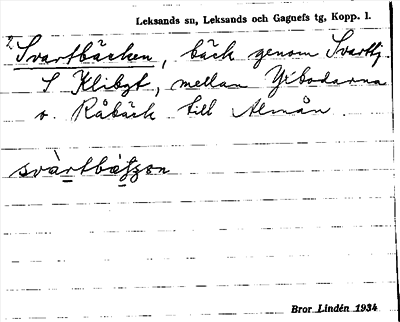 Leksands sn, Leksands och Gagnefs tg, Kopp. l.
2. Svartbäcken, bäck genom Svarttj.
S Klibgt, mellan Yxbodarna
o. Råbäck till Almån.
svàrtbätzen
Bror Lindén 1934